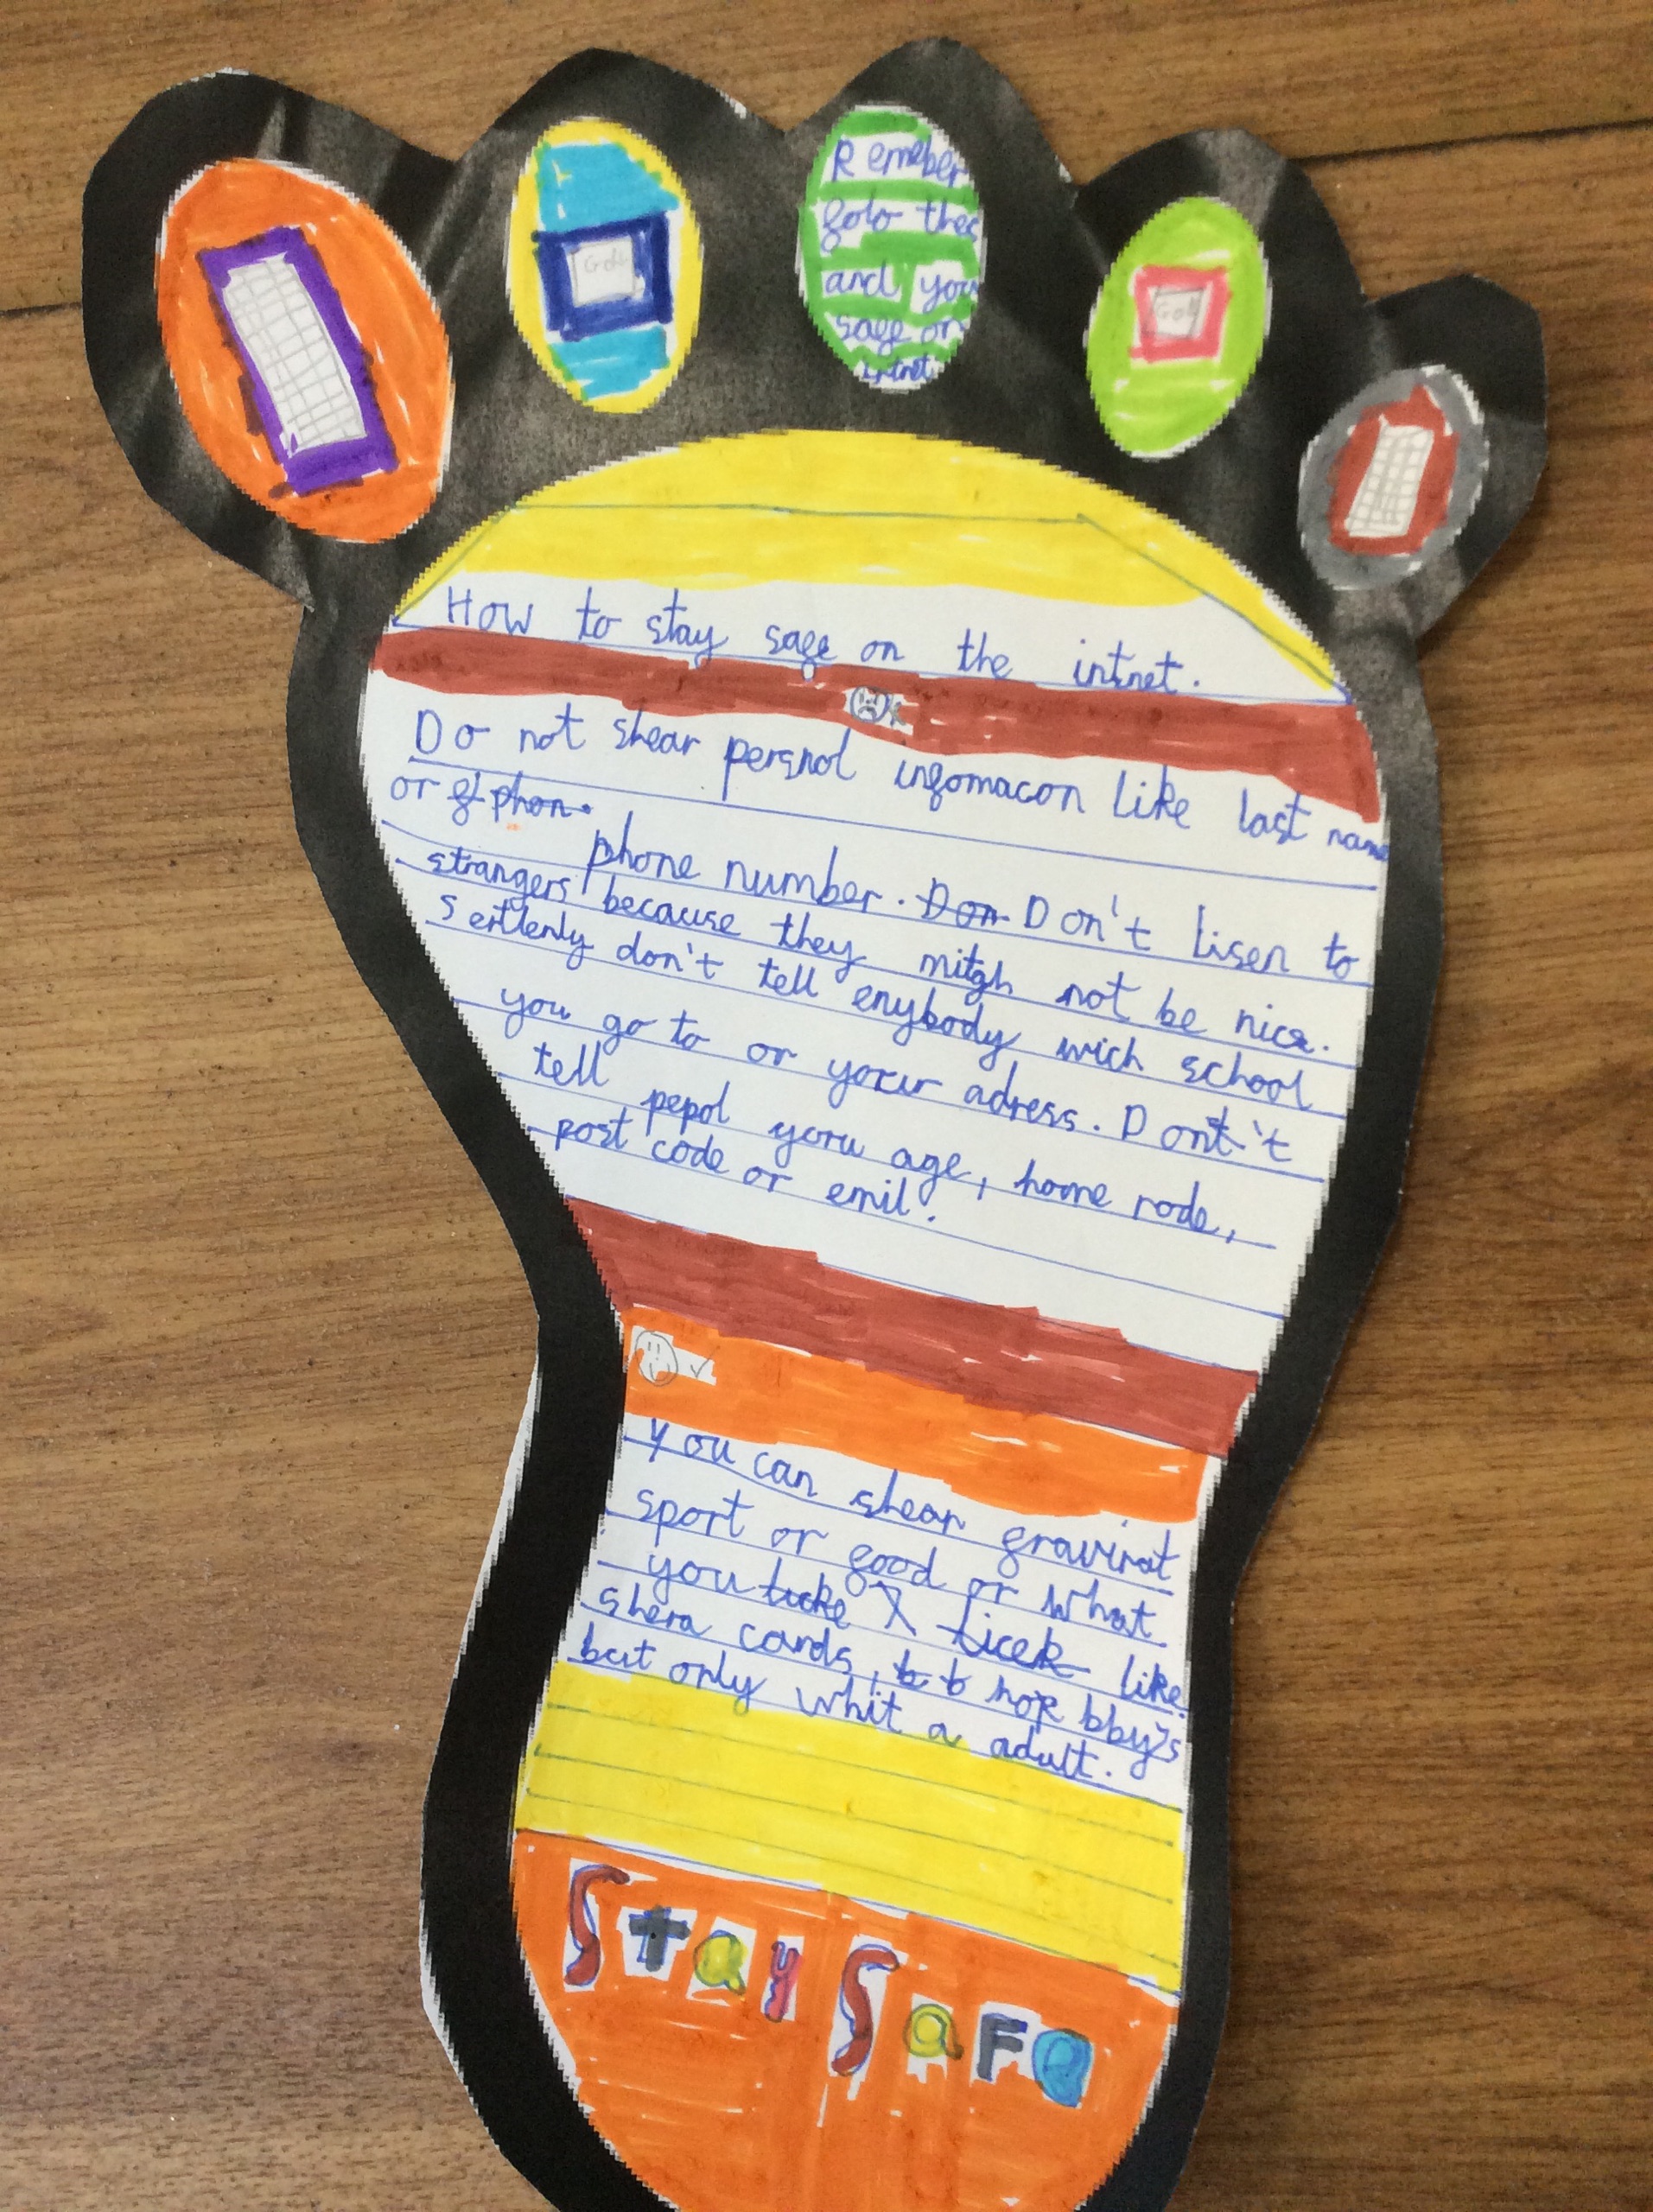 Remember
folo thes
and you
safe on
intnet.
How to stay safe on the intnet.
Do not shear persnol infomacon like last name
or f phon.
phone number. Don Don't lisen to
strangers because they mitgh not be nice.
Sertlenly don't tell enybody wich school
you go to or your adress. Dont't
tell pepol yoru age, home rode,
post code or emil.
You can shear fravirat
sport or food or what
you licke X licek like
shera cards, b b hop bby's
but only whit a adult.
Stay Safe